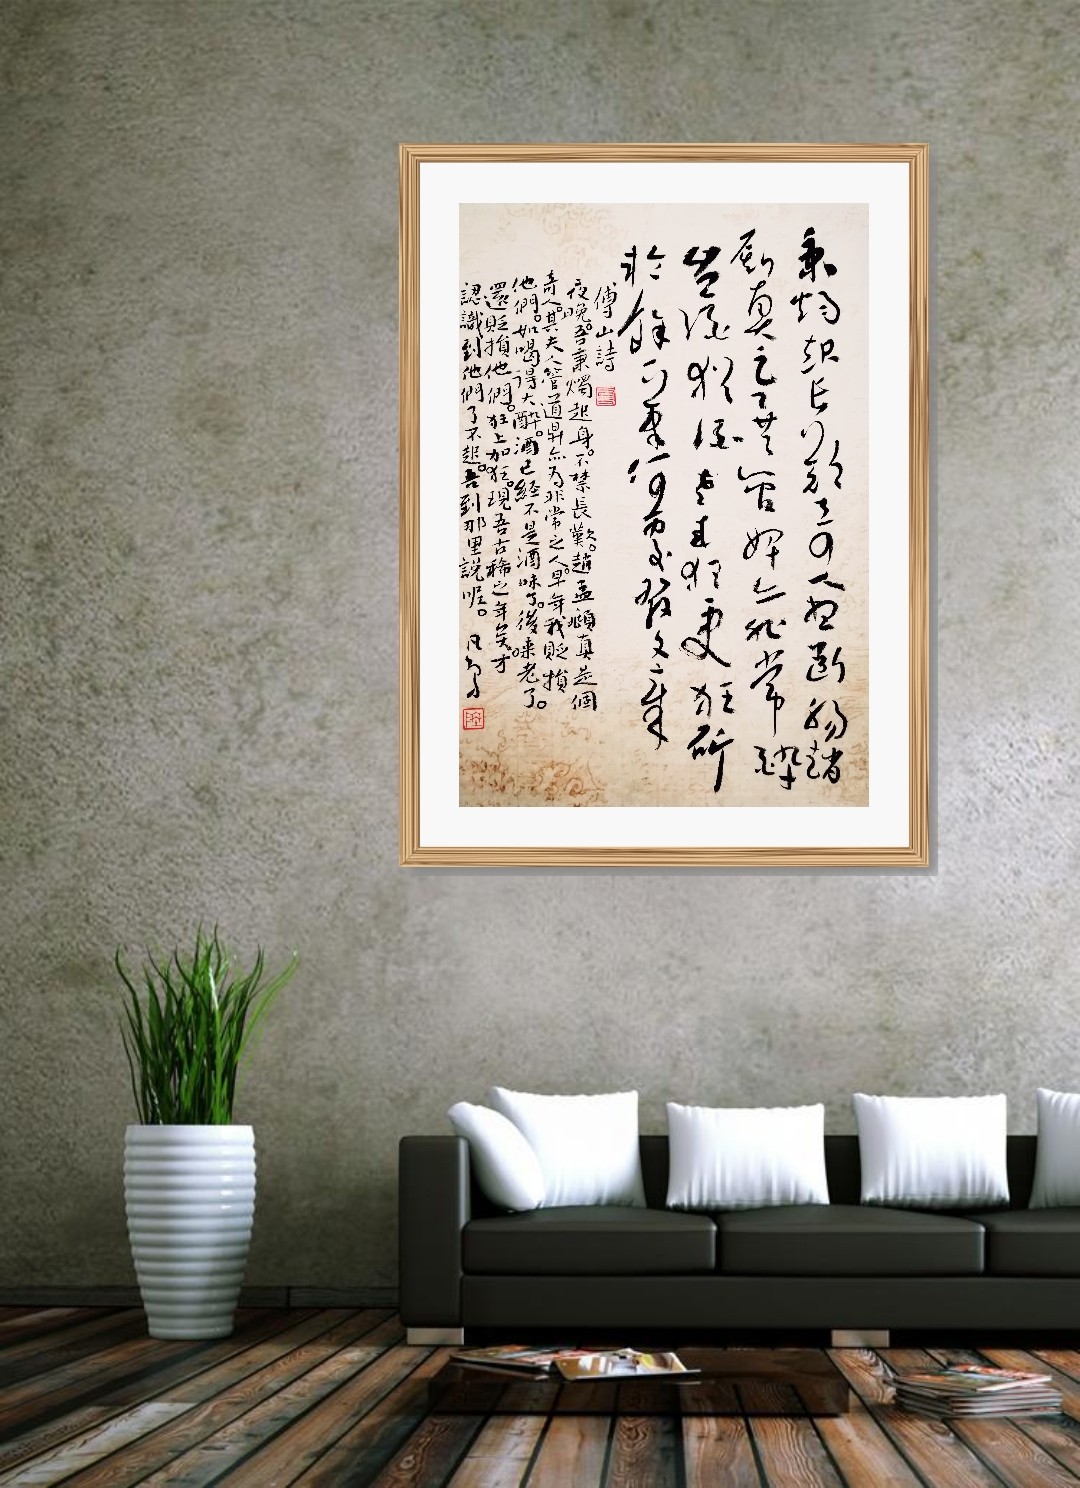 秉燭起長歎奇人想斷腸趙
廝真足異管婢亦非常醉
豈酒猶酒老來狂更狂斫
輪餘一筆何處發文章
傅山詩
夜晚。吾秉燭起身。不禁長歎。趙孟頫真是個
奇人。其夫人管道昇亦為非常之人。早年我貶損
他們。如喝得大醉。酒已經不是酒味了。後來老了。
還貶損他們。狂上加狂。現吾古稀之年矣。才
認識到他們了不起。吾到那里說呢。